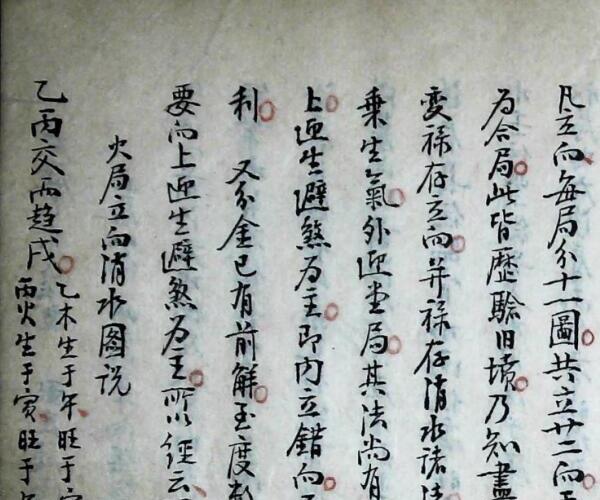 凡立向每局分十一圖共立廿二向
为合局此皆歷驗旧墳乃知盡
变禄存立向并禄存消水諸法
乗生氣外迎堂局其法尚有
上迎生避煞为主即内立錯向
利 又分金已有前解玉度
要向上迎生避煞为主所以经云
火局立向消水图説
乙丙交而趋戌
乙木生于午旺于寅
丙火生于寅旺于午